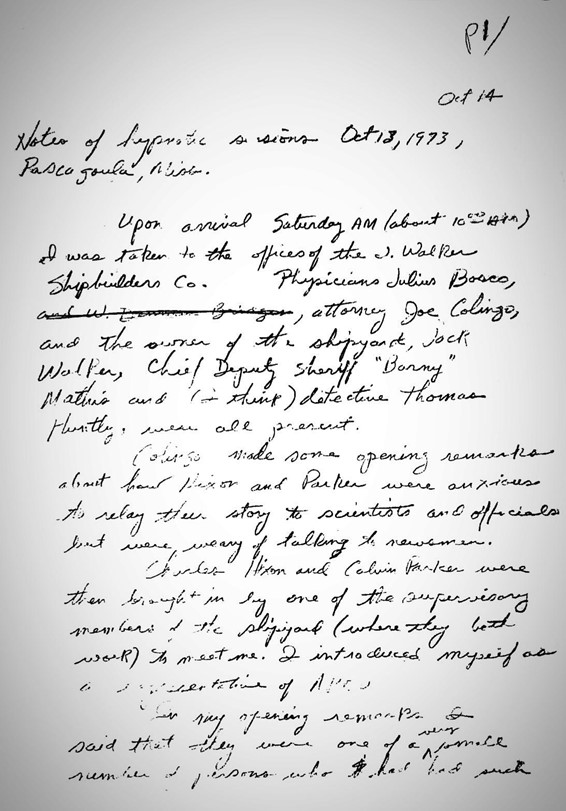 P1/
Oct 14
Notes of hypnotic sessions Oct 13, 1973,
Pascagoula, Miss.
Upon arrival Saturday AM (about 10:00 AM)
I was taken to the offices of the J. Walker
Shipbuilders Co. Physicians Julius Bosco,
and W. Bridges, attorney Joe Colingo,
and the owner of the shipyard, Jack
Walker, Chief Deputy Sheriff "Barny"
Mathis and (I think) detective Thomas
Huntly, were all present.
Colingo made some opening remarks
about how Hixon and Parker were anxious
to relay their story to scientists and officials
but were, weary of talking to newsmen.
Charles Hixon and Calvin Parker were
then brought in by one of the supervisory
members of the shipyard (where they both
work) to meet me. I introduced myself as
a representative of APRO
In my opening remarks I
said that they were one of a very small
number of persons who had had such